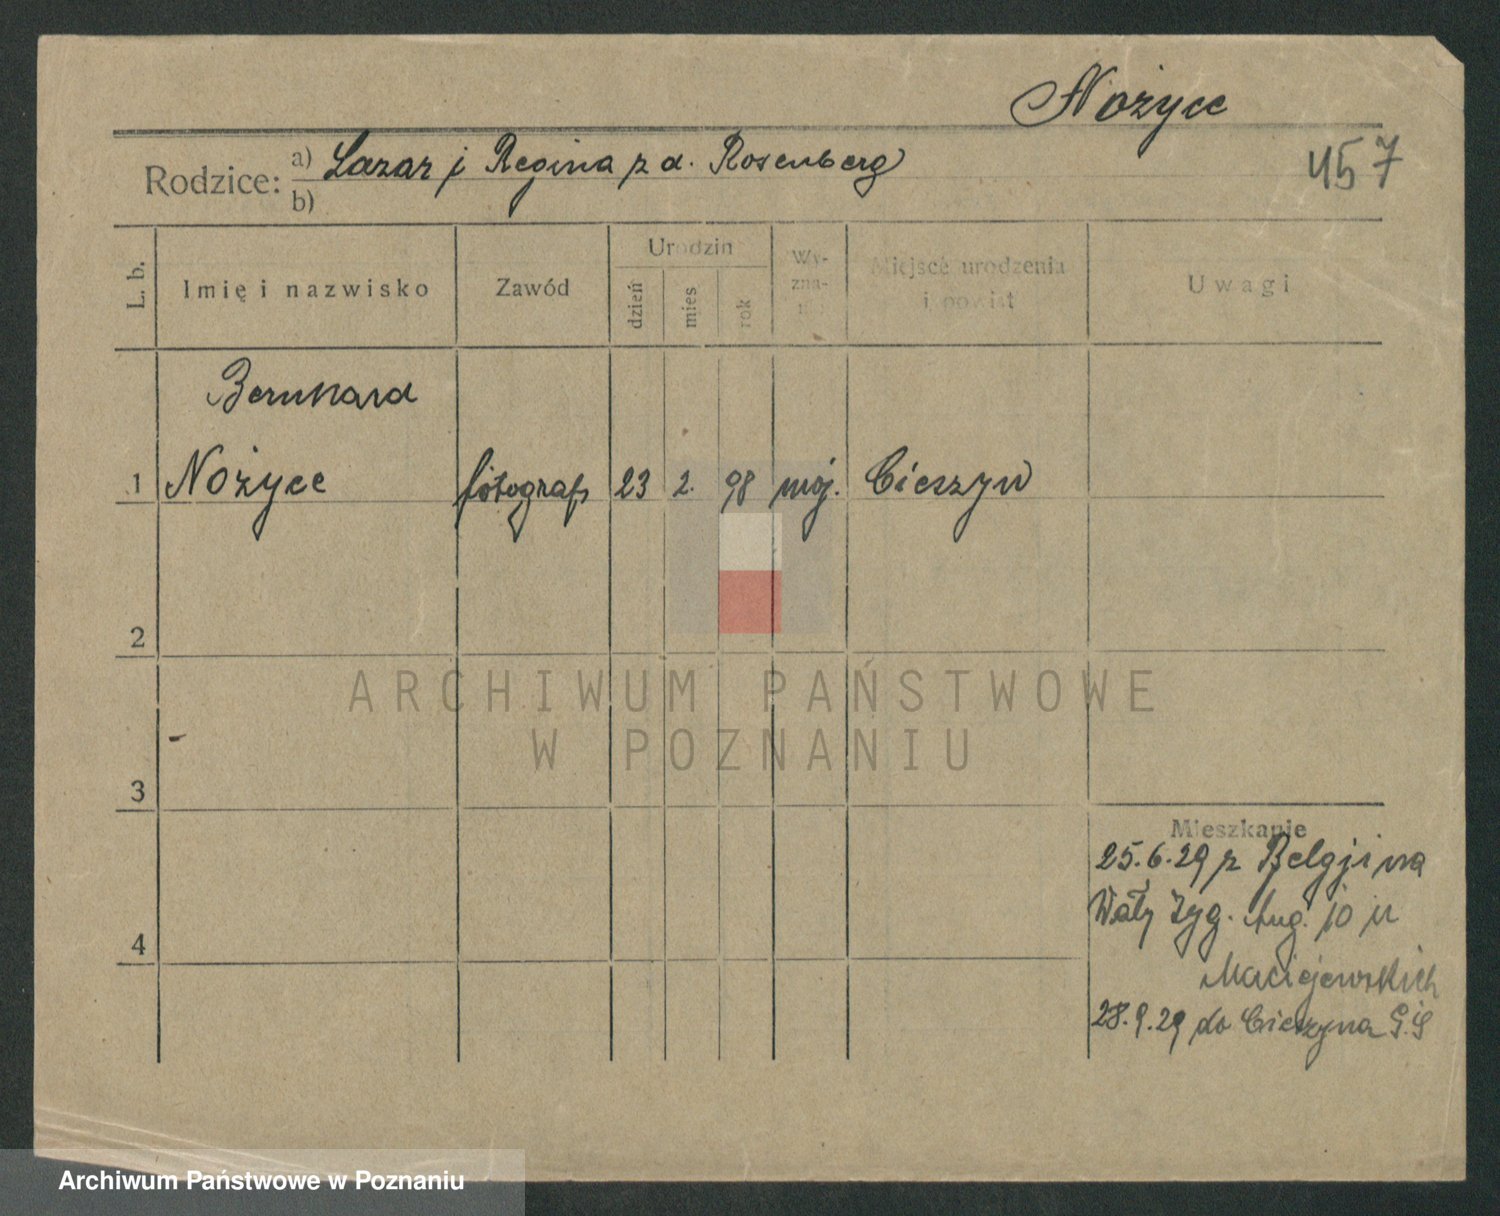 Nożyce
457
Rodzice: a) Lazar i Regina z d. Rosenberg
b)
L. b.
Imię i nazwisko
Zawód
Urodzin
dzień
mies
rok
Wy-
zna-
Miejsce urodzenia
i powiat
Uwagi
Bernhard
1 Nożyce fotograf 23 2. 98 moj. Cieszyn
2
3
4
ARCHIWUM PAŃSTWOWE
W POZNANIU
Mieszkanie
25.6.29 z Belgji na
Wały Zyg. Aug. 10 u
Maciejewskich
28.9.29 do Cieszyna G.S
Archiwum Państwowe w Poznaniu